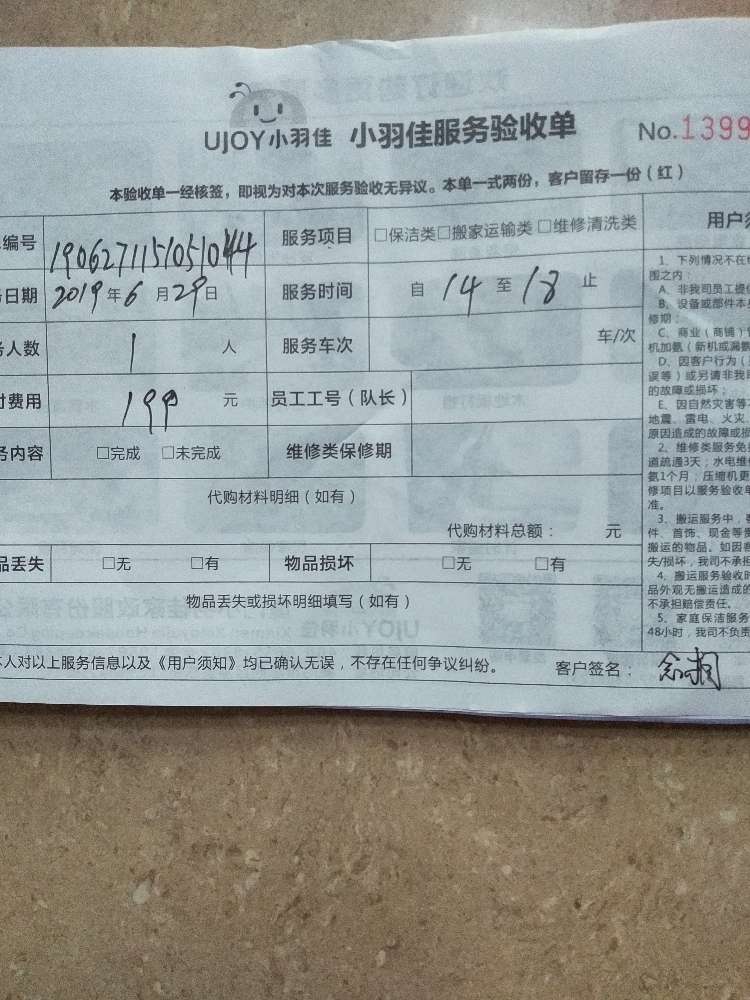 UJOY小羽佳 小羽佳服务验收单 No.1399
本验收单一经核签，即视为对本次服务验收无异议。本单一式两份，客户留存一份（红）
编号 服务项目 □保洁类□搬家运输类□维修清洗类
日期 2019年6月29日 服务时间 自 14 至 18 止
人数 1 人 服务车次 车/次
付费用 199 元 员工工号（队长）
务内容 □完成 □未完成 维修类保修期
代购材料明细（如有）
代购材料总额： 元
品丢失 □无 □有 物品损坏 □无 □有
物品丢失或损坏明细填写（如有）
本人对以上服务信息以及《用户须知》均已确认无误，不存在任何争议纠纷。 客户签名：
用户须
1、下列情况不在
围之内：
A、非我司员工提
B、设备或部件本
修期；
C、商业（商铺）
机加氨（新机或漏氨
D、因客户行为（
误等）或另请非我
的故障或损坏；
E、因自然灾害等
地震、雷电、火灾
原因造成的故障或损
2、维修类服务免
道疏通3天；水电维
氨1个月；压缩机更
修项目以服务验收单
准。
3、搬运服务中，
件、首饰、现金等贵
搬运的物品。如因客
失/损坏，我司不承担
4、搬运服务验收时
品外观无搬运造成的
不承担赔偿责任。
5、家庭保洁服务
48小时，我司不负责